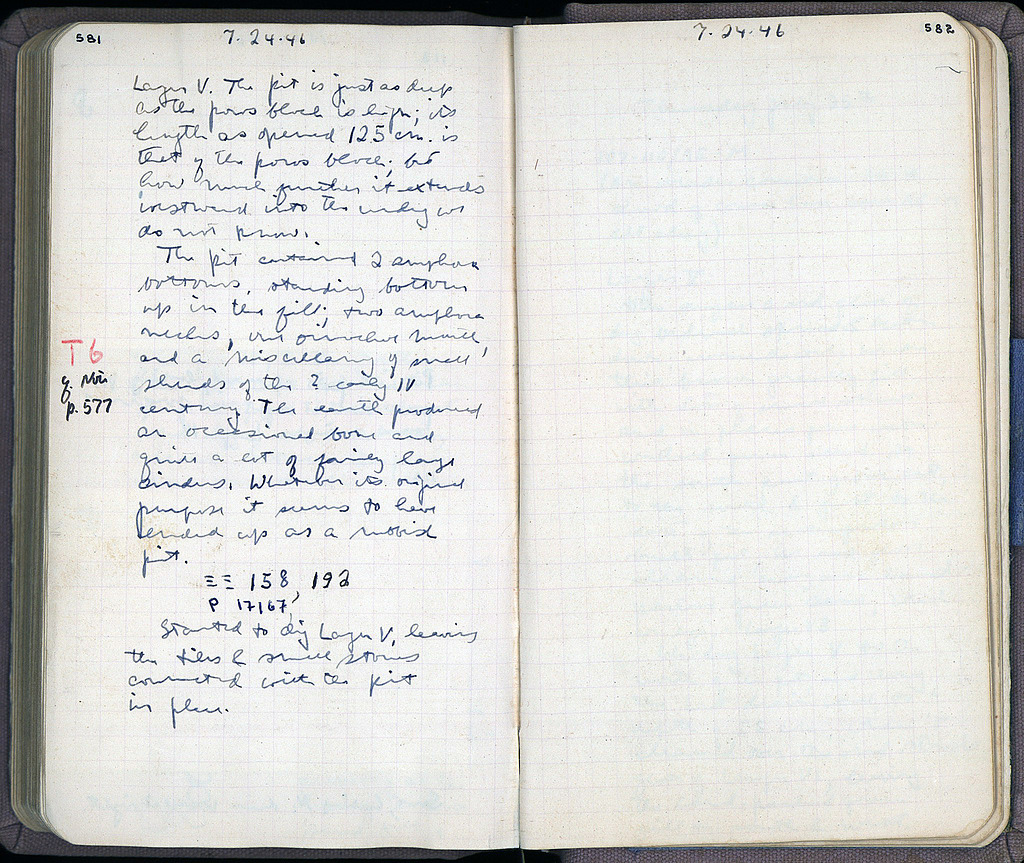 581
7-24-46
Layer V. The pit is just as deep
as the poros block is high; its
length as opened 1.25 cm. is
that of the poros block; but
how much further it extends
westward into the undug we
do not know.
The pit contained 2 amphora
bottoms, standing bottom
up in the fill; two amphora
necks, one oinochoe mouth,
and a miscellany of small
sherds of the ? early IV
century. The earth produced
an occasional bone and
quite a lot of fairly large
cinders. Whatever its original
purpose it seems to have
ended up as a rubbish
pit.
T6
p. 577
ΞΞ 158, 192
P 17167
Started to dig Layer V, leaving
the tiles & small stones
connected with the pit
in place.
7-24-46
582